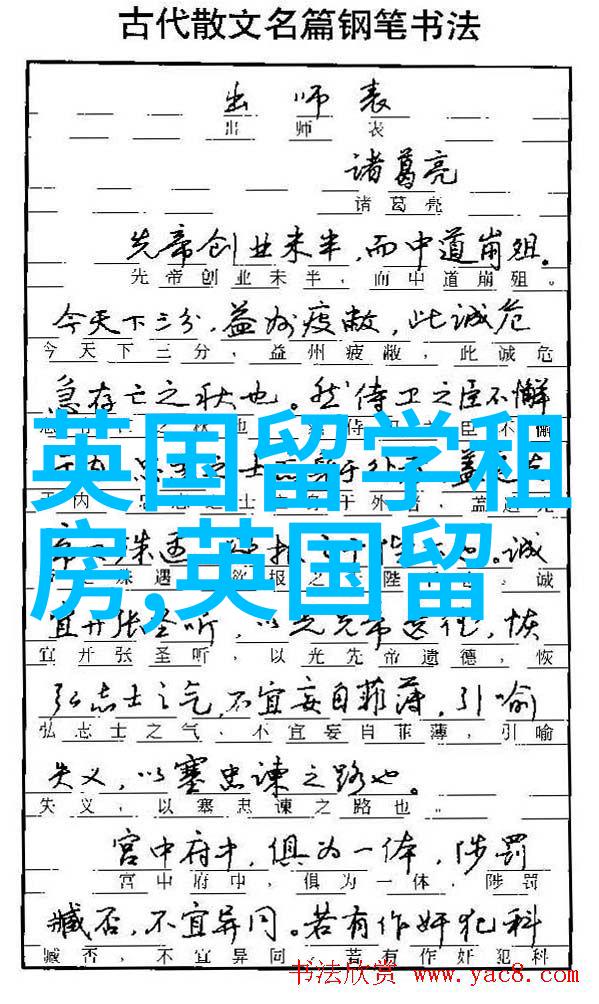 古代散文名篇钢笔书法
出师表
出师表
诸葛亮
诸葛亮
先帝创业未半,而中道崩殂。
先帝创业未半,而中道崩殂。
今天下三分,益州疲敝,此诚危
今天下三分,益州疲敝,此诚危
急存亡之秋也。然侍卫之臣不懈
英国留学租
房,英国留
诚
宜开张圣听,以光先帝遗德,恢
宜开张圣听,以光先帝遗德,恢
弘志士之气,不宜妄自菲薄,引喻
弘志士之气,不宜妄自菲薄,引喻
失义,以塞忠谏之路也。
失义,以塞忠谏之路也。
宫中府中,俱为一体,陟罚
宫中府中,俱为一体,陟罚
臧否,不宜异同。若有作奸犯科
臧否,不宜异同。若有作奸犯科
书法欣赏 www.yac8.com